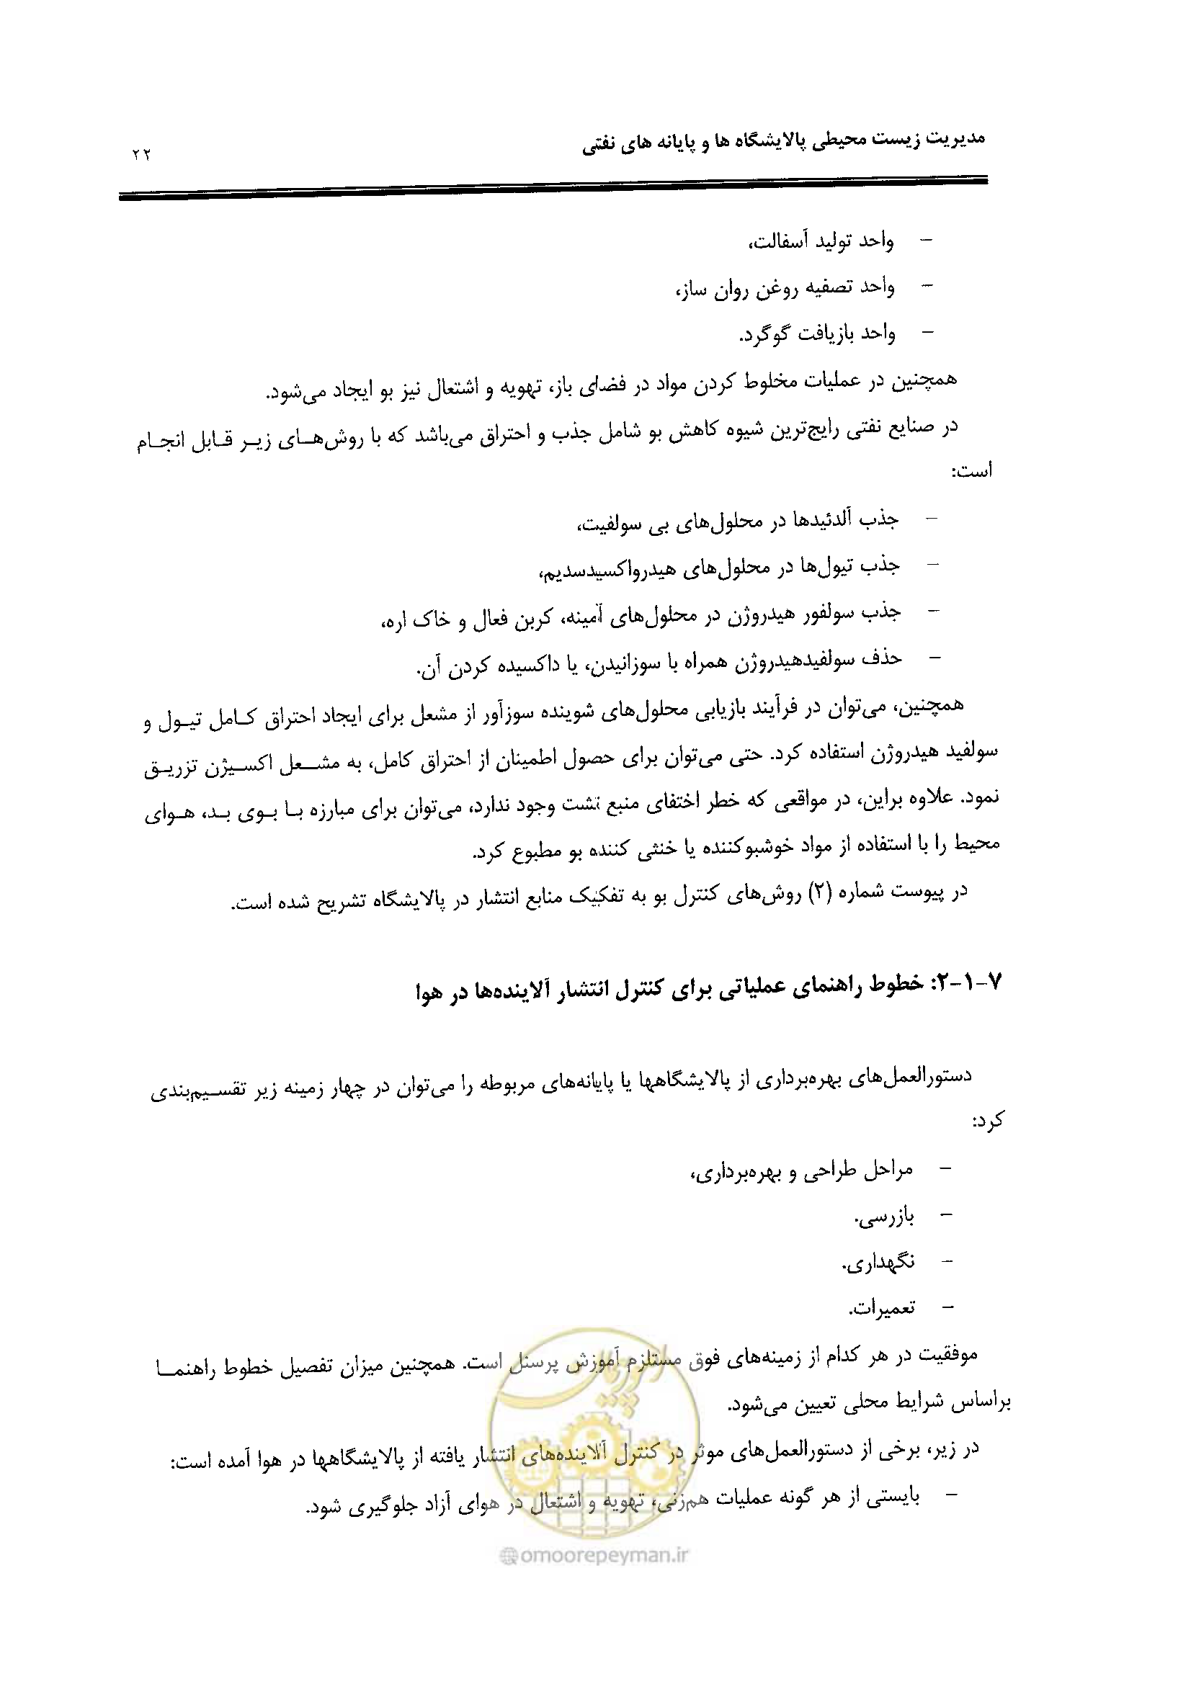 مدیریت زیست محیطی پالایشگاه ها و پایانه های نفتی
۲۲
– واحد تولید آسفالت،
– واحد تصفیه روغن روان ساز،
– واحد بازیافت گوگرد.
همچنین در عملیات مخلوط کردن مواد در فضای باز، تهویه و اشتعال نیز بو ایجاد می‌شود.
در صنایع نفتی رایج‌ترین شیوه کاهش بو شامل جذب و احتراق می‌باشد که با روش‌های زیر قابل انجام
است:
– جذب آلدئیدها در محلول‌های بی سولفیت،
– جذب تیول‌ها در محلول‌های هیدرواکسیدسدیم،
– جذب سولفور هیدروژن در محلول‌های آمینه، کربن فعال و خاک اره،
– حذف سولفیدهیدروژن همراه با سوزانیدن، یا داکسیده کردن آن.
همچنین، می‌توان در فرآیند بازیابی محلول‌های شوینده سوزآور از مشعل برای ایجاد احتراق کامل تیول و
سولفید هیدروژن استفاده کرد. حتی می‌توان برای حصول اطمینان از احتراق کامل، به مشعل اکسیژن تزریق
نمود. علاوه براین، در مواقعی که خطر اختفای منبع نشت وجود ندارد، می‌توان برای مبارزه با بوی بد، هوای
محیط را با استفاده از مواد خوشبوکننده یا خنثی کننده بو مطبوع کرد.
در پیوست شماره (۲) روش‌های کنترل بو به تفکیک منابع انتشار در پالایشگاه تشریح شده است.
۲-۱-۷: خطوط راهنمای عملیاتی برای کنترل انتشار آلاینده‌ها در هوا
دستورالعمل‌های بهره‌برداری از پالایشگاهها یا پایانه‌های مربوطه را می‌توان در چهار زمینه زیر تقسیم‌بندی
کرد:
– مراحل طراحی و بهره‌برداری،
– بازرسی.
– نگهداری.
– تعمیرات.
موفقیت در هر کدام از زمینه‌های فوق مستلزم آموزش پرسنل است. همچنین میزان تفصیل خطوط راهنما
براساس شرایط محلی تعیین می‌شود.
در زیر، برخی از دستورالعمل‌های موثر در کنترل آلاینده‌های انتشار یافته از پالایشگاهها در هوا آمده است:
– بایستی از هر گونه عملیات هم‌زنی، تهویه و اشتعال در هوای آزاد جلوگیری شود.
امور پیمان
omoorepeyman.ir